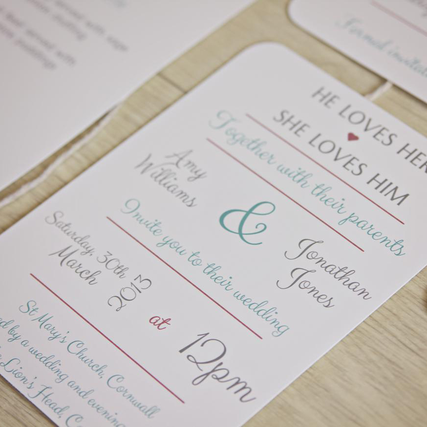 HE LOVES HER
SHE LOVES HIM
Together with their parents
Amy
Williams
&
Jonathan
Jones
Invite you to their wedding
Saturday, 30th
March
2013
at
12pm
St Mary's Church, Cornwall
by a wedding and evening
Lion's Head, C
Formal invitat
served with